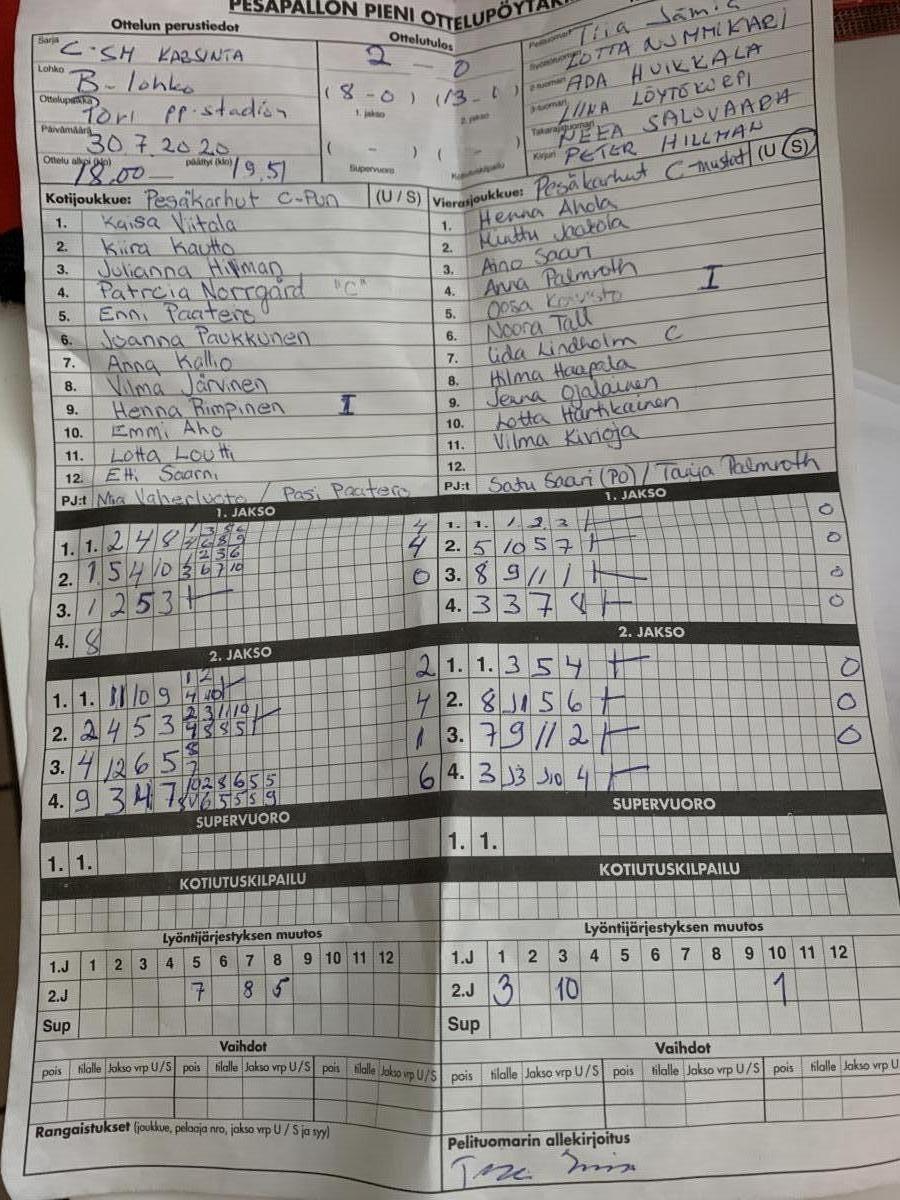 PESÄPALLON PIENI OTTELUPÖYTÄK
Ottelun perustiedot
Sarja C-SM KARSINTA
Lohko B-lohko
Ottelupaikka Pori pp-stadion
Päivämäärä 30.7.2020
Ottelu alkoi (klo) 18.00 päättyi (klo) 19.51
Ottelutulos
2 - 0
(8-0) (13-0)
1. jakso 2. jakso
( - ) ( - )
Supervuoro
Pelituomari Tiia
LOTTA NUMMIKARI
ADA HUIKKALA
LIINA LÖYTÖKORPI
Takarajatuomari NEEA SALOVAARA
Kirjuri PETER HILLMAN
Kotijoukkue: Pesäkarhut C-Pun (U / S)
1. Kaisa Viitala
2. Kiira Kautto
3. Julianna Hillman
4. Patrcia Norrgård "C"
5. Enni Paatero
6. Joanna Paukkunen
7. Anna Kallio
8. Vilma Järvinen
9. Henna Rimpinen I
10. Emmi Aho
11. Lotta Loutti
12. Etti Saarni
PJ:t Nia Vaherluoto / Pasi Paatero
Vierasjoukkue: Pesäkarhut C-mustat (U / S)
1. Henna Ahola
2. Minttu Jaakola
3. Aino Saari
4. Anna Palmroth I
5. Oosa
6. Noora Tall
7. Iida Lindholm C
8. Hilma Haapala
9. Jenna Ojalainen
10. Lotta Hartikainen
11. Vilma Kivioja
12.
PJ:t Satu Saari (PO) / Tanja Palmroth
1. JAKSO
1. 1. 2 4 8 4
2. 1 5 4 10 4
3. 1 2 5 3 0
4. 8
2. JAKSO
1. 1. 11 10 9 2
2. 2 4 5 3 4
3. 4 12 6 5 1
4. 9 3 4 7 6
SUPERVUORO
1. 1.
KOTIUTUSKILPAILU
1. JAKSO
1. 1. 1 2 3 0
2. 5 10 5 7 0
3. 8 9 11 1 0
4. 3 3 7 8 0
2. JAKSO
1. 1. 3 5 4 0
2. 8 J1 5 6 0
3. 7 9 11 2 0
4. 3 J3 J10 4
SUPERVUORO
1. 1.
KOTIUTUSKILPAILU
Lyöntijärjestyksen muutos
1.J 1 2 3 4 5 6 7 8 9 10 11 12
2.J 7 8 5
Sup
Vaihdot
pois tilalle Jakso vrp U / S pois tilalle Jakso vrp U / S pois tilalle Jakso vrp U / S
Rangaistukset (joukkue, pelaaja nro, jakso vrp U / S ja syy)
Lyöntijärjestyksen muutos
1.J 1 2 3 4 5 6 7 8 9 10 11 12
2.J 3 10 1
Sup
Vaihdot
pois tilalle Jakso vrp U / S pois tilalle Jakso vrp U / S pois tilalle Jakso vrp U
Pelituomarin allekirjoitus